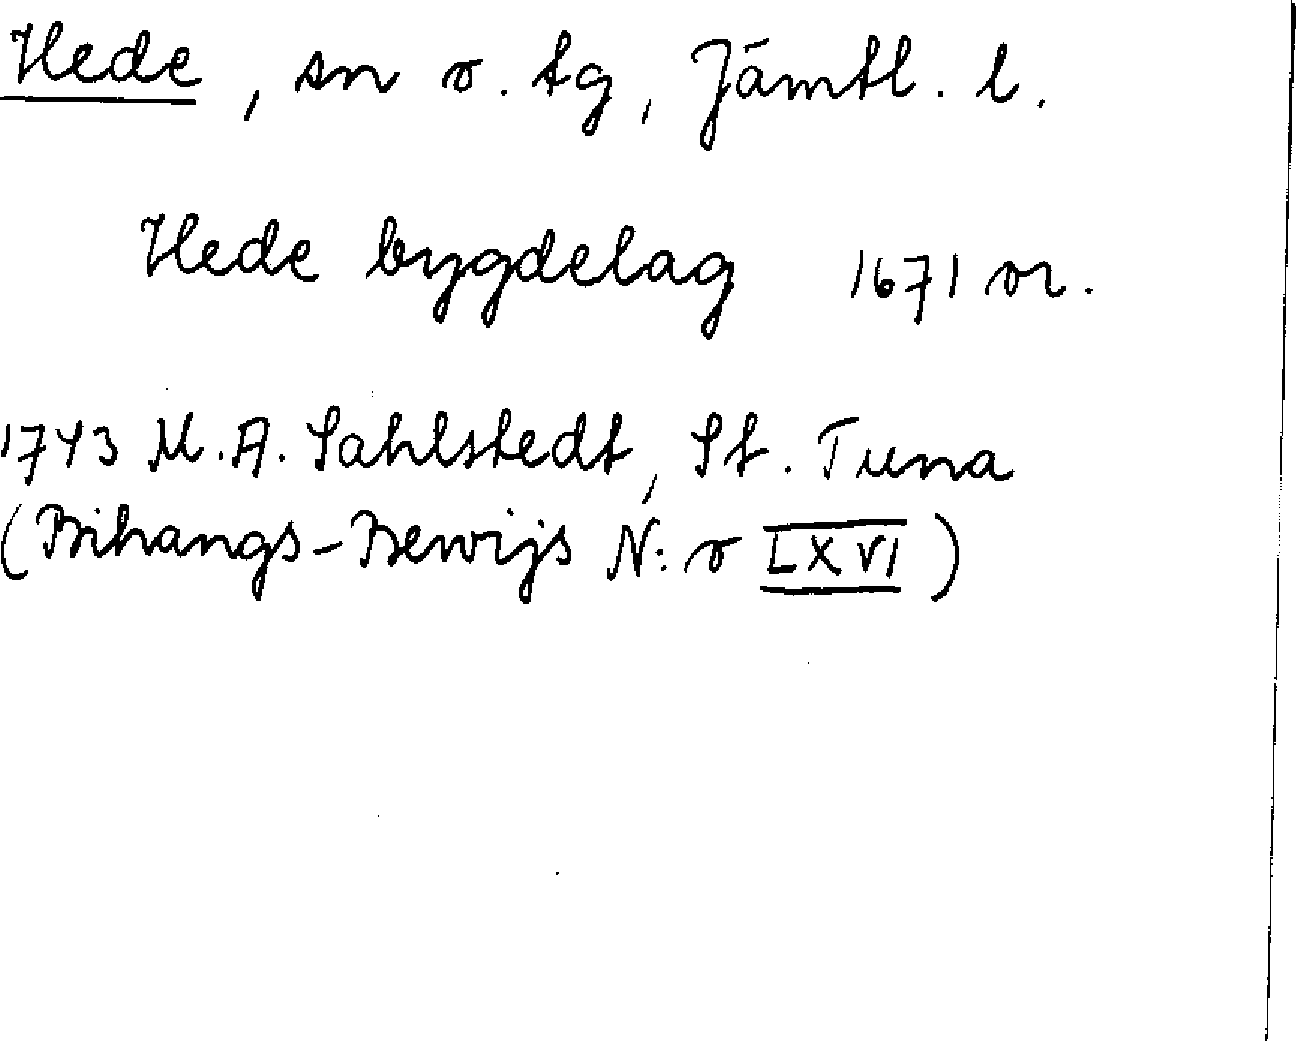 Hede, sn o. tg, Jämtl. l.
Hede bygdelag 1671 or.
1743 M.A. Sahlstedt, St. Tuna
(Bihangs-Bewijs N:o LXVI)